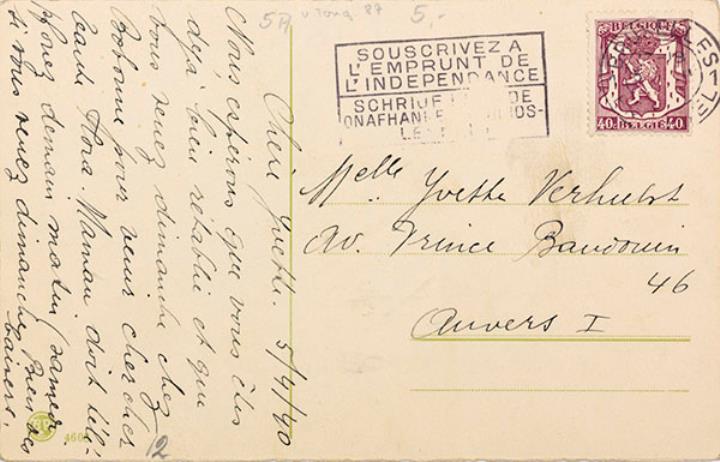 5A
5,-
SOUSCRIVEZ A
L'EMPRUNT DE
L'INDEPENDANCE
SCHRIJF DE
LE
BELGIQUE
40c BELGIE 40
Chère Yvette. 5/4/40
Nous espérons que vous êtes
déjà bien rétablie et que
vous venez dimanche chez
Bobonne pour vous chercher
Flora. Maman doit télé-
phonez demain matin samedi
si vous venez dimanche. Bien des
baisers.
Melle Yvette Verhulst
Av. Prince Baudouin
46
Anvers I
12